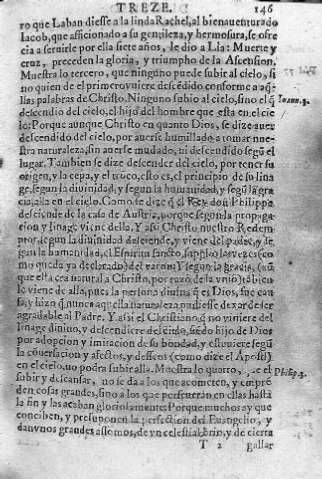 TREZE. 146
ro que Laban diesse a la linda Rachel, al bienauenturado
Iacob, que afficionado a su gentileza, y hermosura, se ofre
cia a seruirle por ella siete años, le dio a Lia: Muerte y
cruz, preceden la gloria, y triumpho de la Ascension.
Muestra lo tercero, que ninguno puede subir al cielo, si
no quien de el primero viniere descēdido conforme a aq̄-
llas palabras de Christo. Ninguno subio al cielo, sino el q̄
descendio del cielo, el hijo del hombre que esta en el cie
lo: Porque aunque Christo en quanto Dios, se dize auer
descendido del cielo, por auerse humillado a tomar nue
stra naturaleza, sin auerse mudado, ni descendido segū el
lugar. Tambien se dize descender del cielo, por tener su
origen, y la cepa, y el troco, esto es, el principio de su lina
ge, segun la diuinidad, y segun la humanidad, y segū la gra
cia, alla en el cielo. Como se dize q̄ el Rey don Philippe
desciende de la casa de Austria, porque segun la propaga
cion y linage viene della. Y assi Christo nuestro Redem-
ptor, segun la diuinidad desciende, y viene del padre, y se
gun la humanidad, el Espiritu sancto, suplio las vezes (co
mo queda ya declarado) del varon. Y segun la gracia, (aū
que esta era natural a Christo, por razō de la vniō) tābien
le viene de alla, pues la persona diuina q̄ es Dios, fue cau
sa, y hizo q̄ nunca aquella naturaleza pudiesse dexar de ser
agradable al Padre. Y assi el Christiano, q̄ no viniere del
linage diuino, y descendiere del cielo, siēdo hijo de Dios
por adopcion y imitacion de su bondad, y estuuiere segū
la cōuersacion y afectos, y desseos (como dize el Apostol)
en el cielo, no podra subir alla. Muestra lo quarto, que el
subir y descansar, no se da a los que acometen, y emprē
den cosas grandes, sino a los que perseueran en ellas hasta
la fin y las acaban gloriosamente: Porque muchos ay que
conciben, y presuponen la perfection del Euangelio, y
dan vnos grandes assomos, de vn celestial brio, y de cierta
T 2 gallar
Ioann. 3.
Philip. 3.